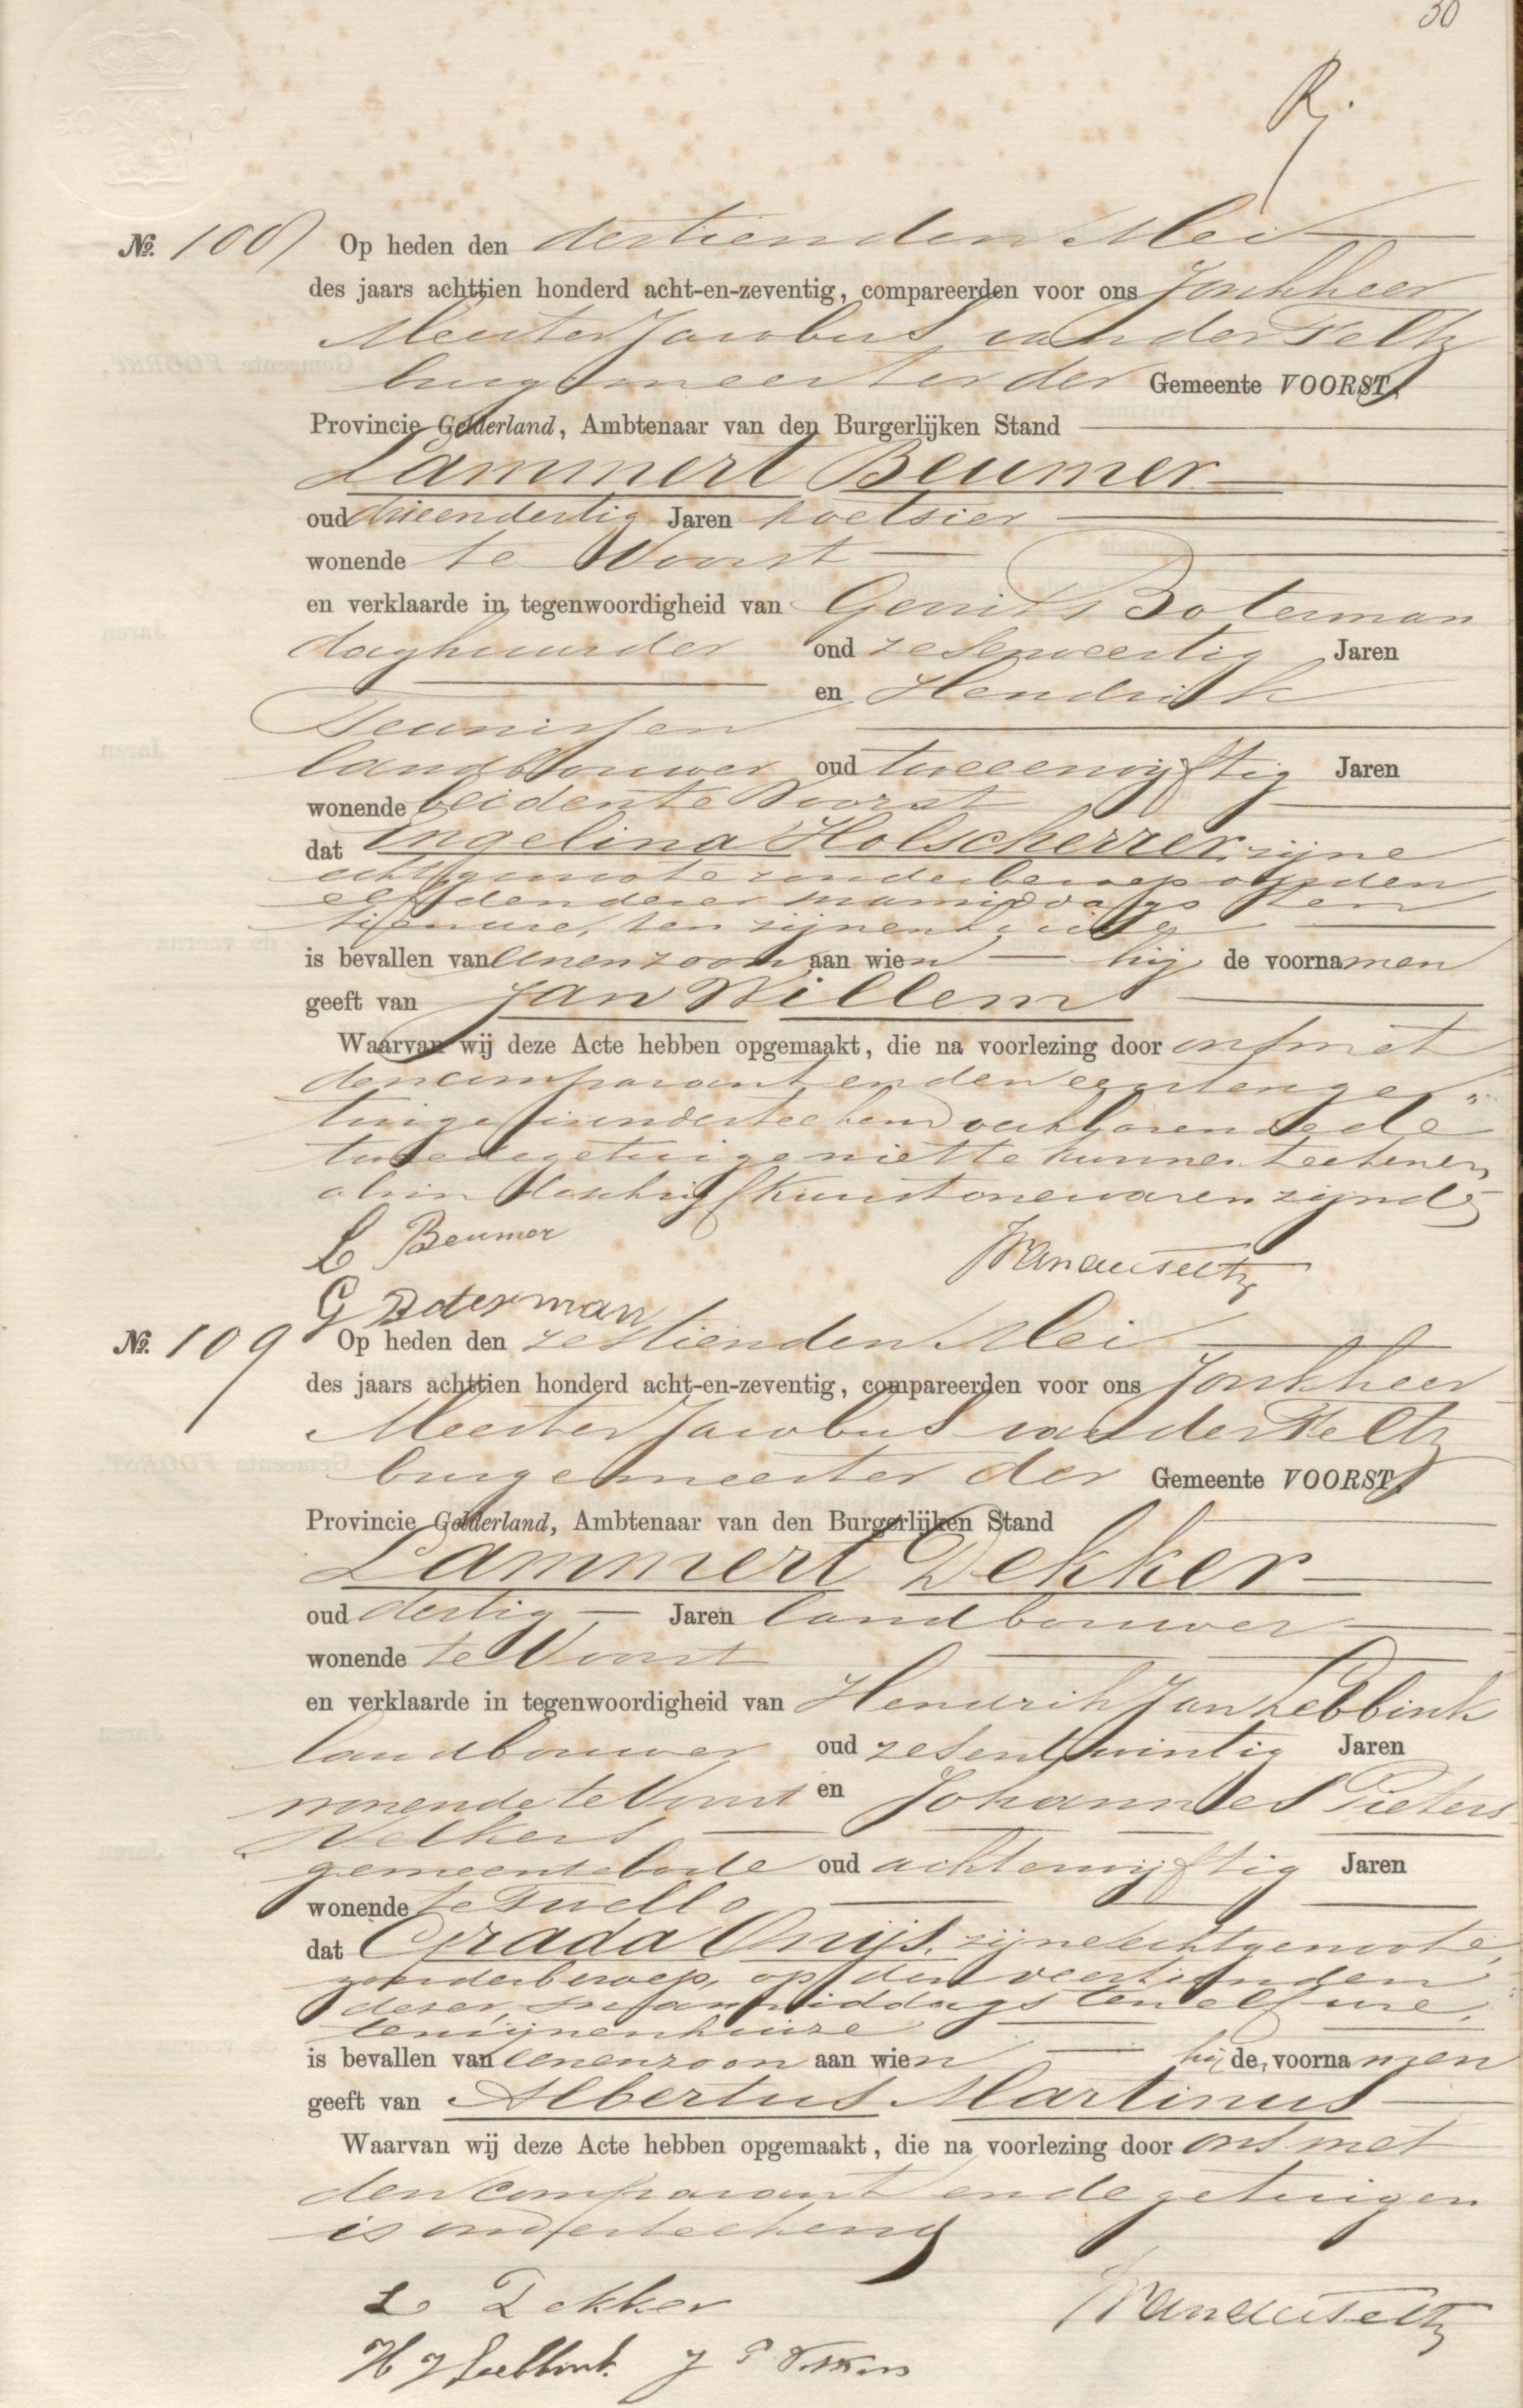 30
Rj.
№. 108 Op heden den dertienden Mei
des jaars achttien honderd acht-en-zeventig, compareerden voor ons Jonkheer
Meester Jacobus van der Feltz
burgemeester der Gemeente VOORST,
Provincie Gelderland, Ambtenaar van den Burgerlijken Stand
Lammert Beumer
oud drieendertig Jaren koetsier
wonende te Voorst
en verklaarde in tegenwoordigheid van Gerrit Boterman
daghuurder oud zesenveertig Jaren
en Hendrik
Teunissen
landbouwer oud tweeenvijftig Jaren
wonende beiden te Voorst
dat Engelina Holscherrer, zijne
echtgenoote zonder beroep op den
elfden dezer namiddags ten
tien ure, ten zijnen huize
is bevallen van eenen zoon aan wien hij de voornamen
geeft van Jan Willem
Waarvan wij deze Acte hebben opgemaakt, die na voorlezing door ons met
den comparant en den eersten ge„
tuige is onderteekend verklarende de
tweede getuige niet te kunnen teekenen
als in de schrijfkunst onervaren zijnde
L Beumer
JvanderFeltz
G Boterman
№. 109 Op heden den zestienden Mei
des jaars achttien honderd acht-en-zeventig, compareerden voor ons Jonkheer
Meester Jacobus van der Feltz
burgemeester der Gemeente VOORST,
Provincie Gelderland, Ambtenaar van den Burgerlijken Stand
Lammert Dekker
oud dertig Jaren landbouwer
wonende te Voorst
en verklaarde in tegenwoordigheid van Hendrik Jan Lebbink
landbouwer oud zesentwintig Jaren
wonende te Voorst en Johannes Pieters
Volkers
gemeentebode oud achtenvijftig Jaren
wonende te Twello
dat Grada Onijs, zijne echtgenoote,
zonder beroep, op den veertienden
dezer, des namiddags ten elf ure,
ten zijnen huize
is bevallen van eenen zoon aan wien hij de voornamen
geeft van Albertus Martinus
Waarvan wij deze Acte hebben opgemaakt, die na voorlezing door ons met
den comparant en de getuigen
is onderteekend
L Dekker
JvanderFeltz
H J Lebbink J P Volkers